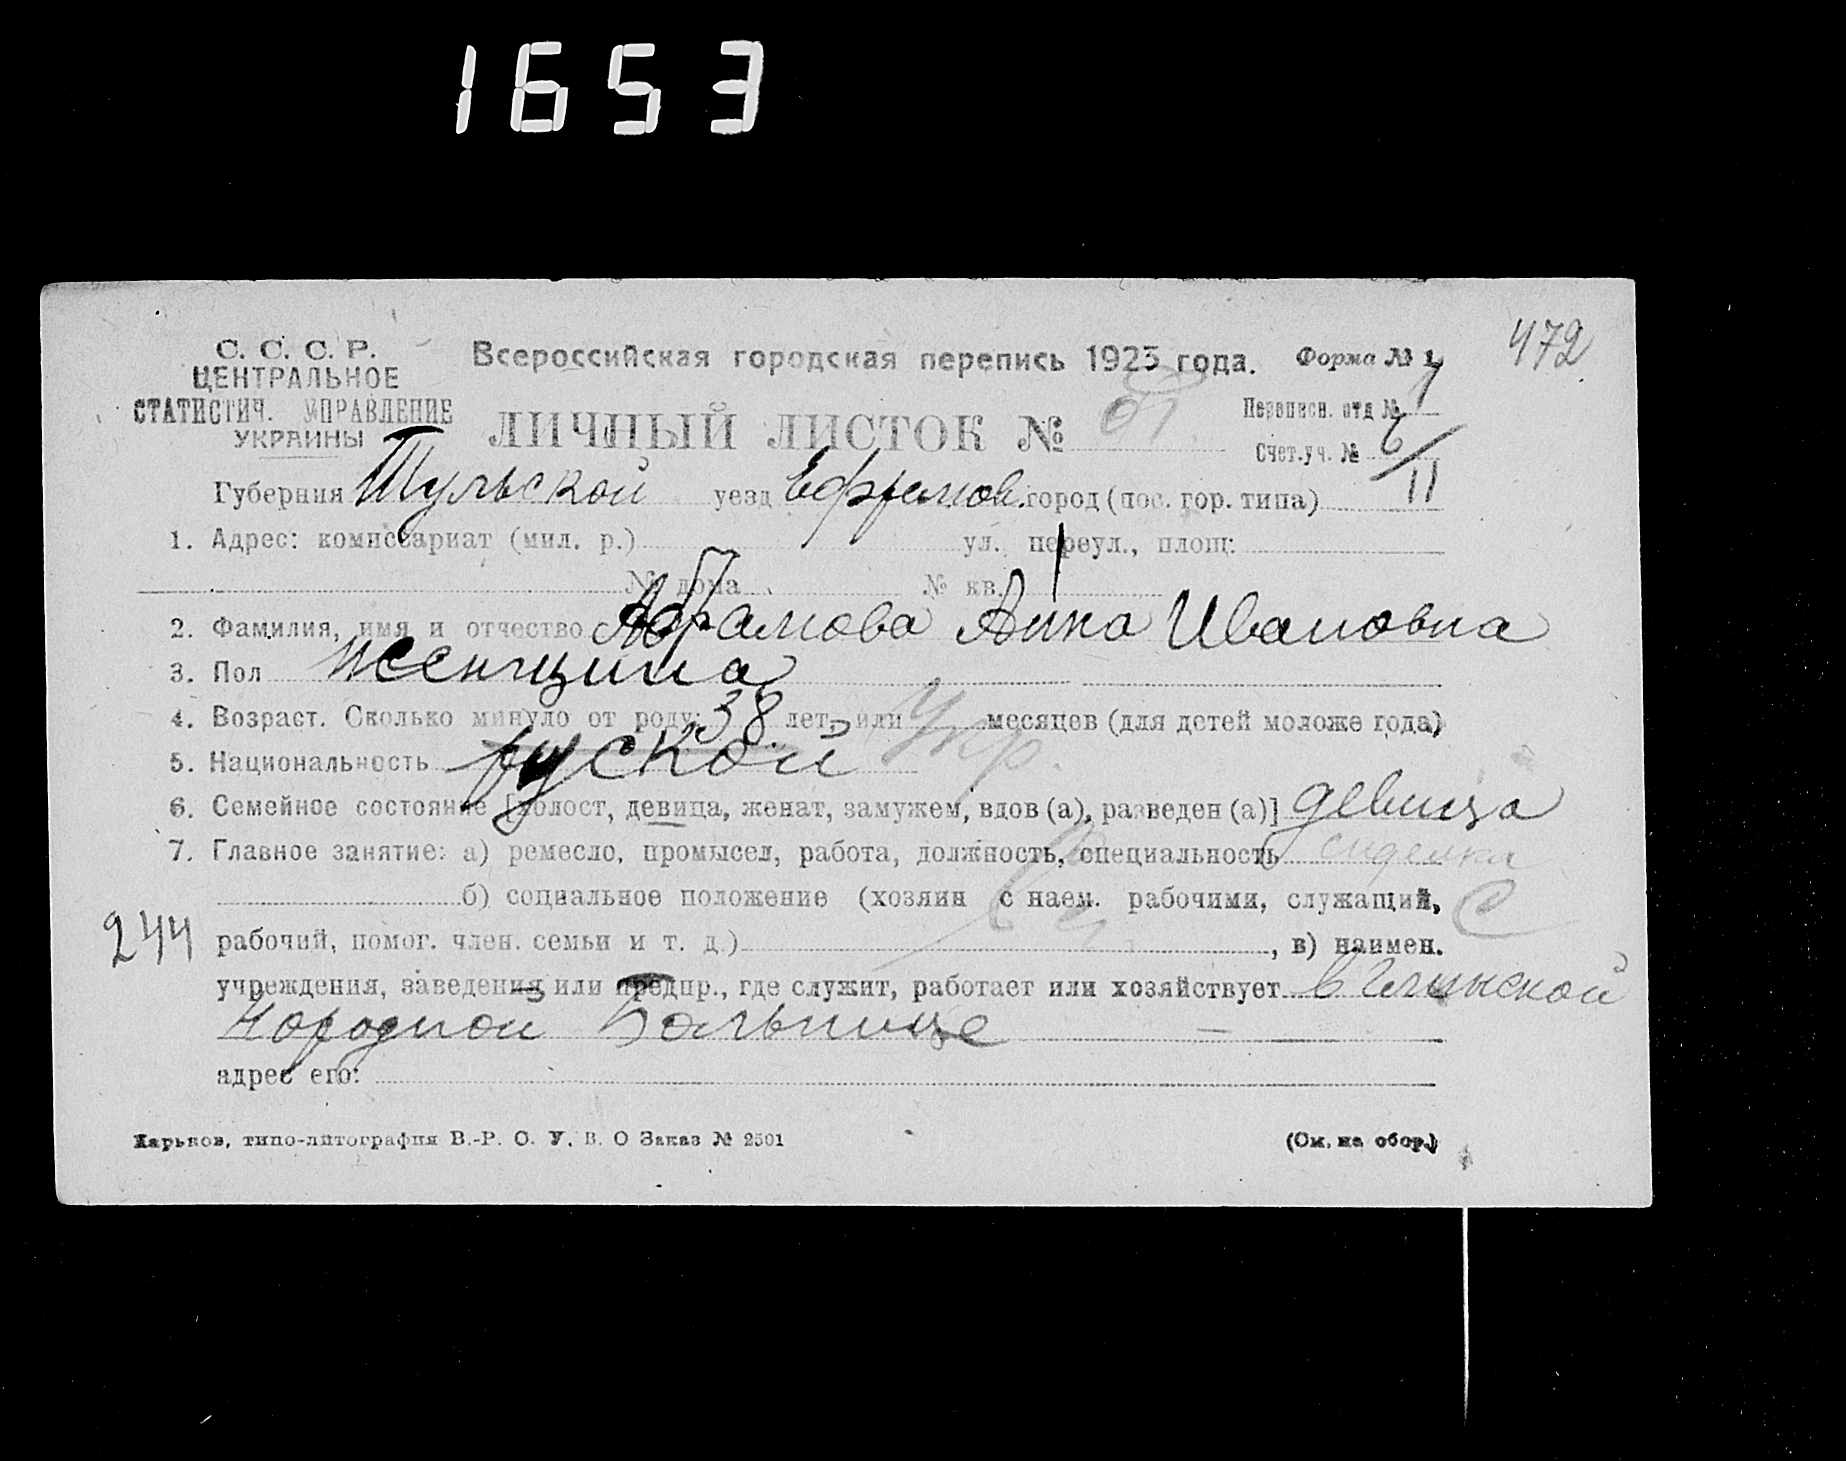 1653
472
С. С. С. Р.
ЦЕНТРАЛЬНОЕ
СТАТИСТИЧ. УПРАВЛЕНИЕ
УКРАИНЫ
Всероссийская городская перепись 1923 года. Форма № 1
ЛИЧНЫЙ ЛИСТОК №
Переписн. отд №
Счет.уч. № 6/11
Губерния Тульской уезд Ефремов. город (пос. гор. типа)
1. Адрес: комиссариат (мил. р.) ул. переул., площ:
№ дома № кв.
2. Фамилия, имя и отчество Абрамова Анна Ивановна
3. Пол женщина
4. Возраст. Сколько минуло от роду: 38 лет, или месяцев (для детей моложе года)
5. Национальность руской Укр.
6. Семейное состояние [холост, девица, женат, замужем, вдов (а), разведен (а)] девица
7. Главное занятие: а) ремесло, промысел, работа, должность, специальность сиделка
б) социальное положение (хозяин с наем. рабочими, служащий, С
244 рабочий, помог. член. семьи и т. д.) , в) наимен.
учреждения, заведения или предпр., где служит, работает или хозяйствует в
Народной Больнице
адрес его:
Харьков, типо-литография В.-Р. О. У. В. О Заказ № 2501
(См. на обор.)